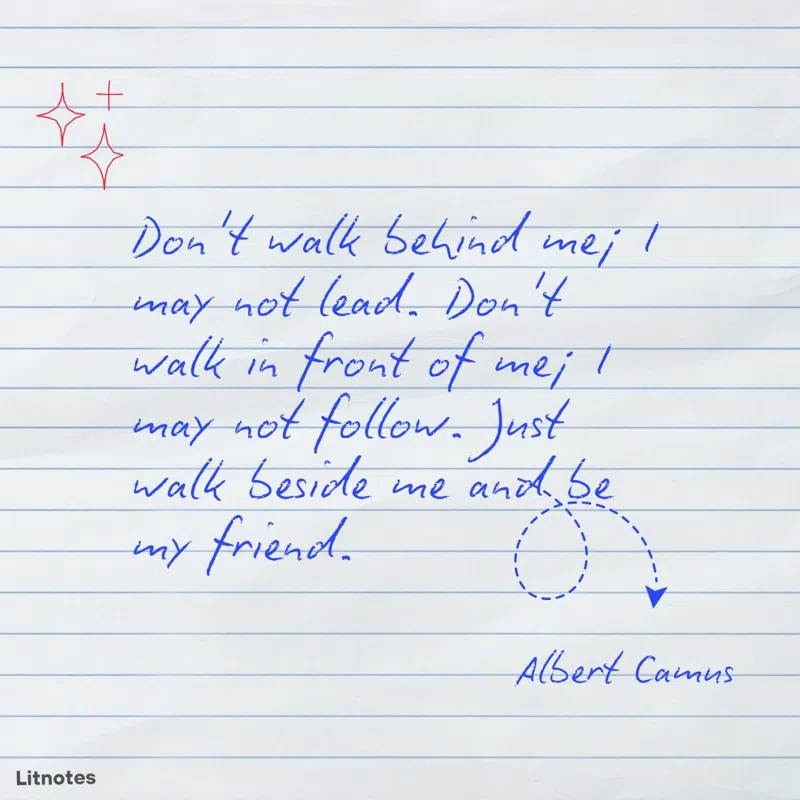 Don't walk behind me; I
may not lead. Don't
walk in front of me; I
may not follow. Just
walk beside me and be
my friend.
Albert Camus
Litnotes